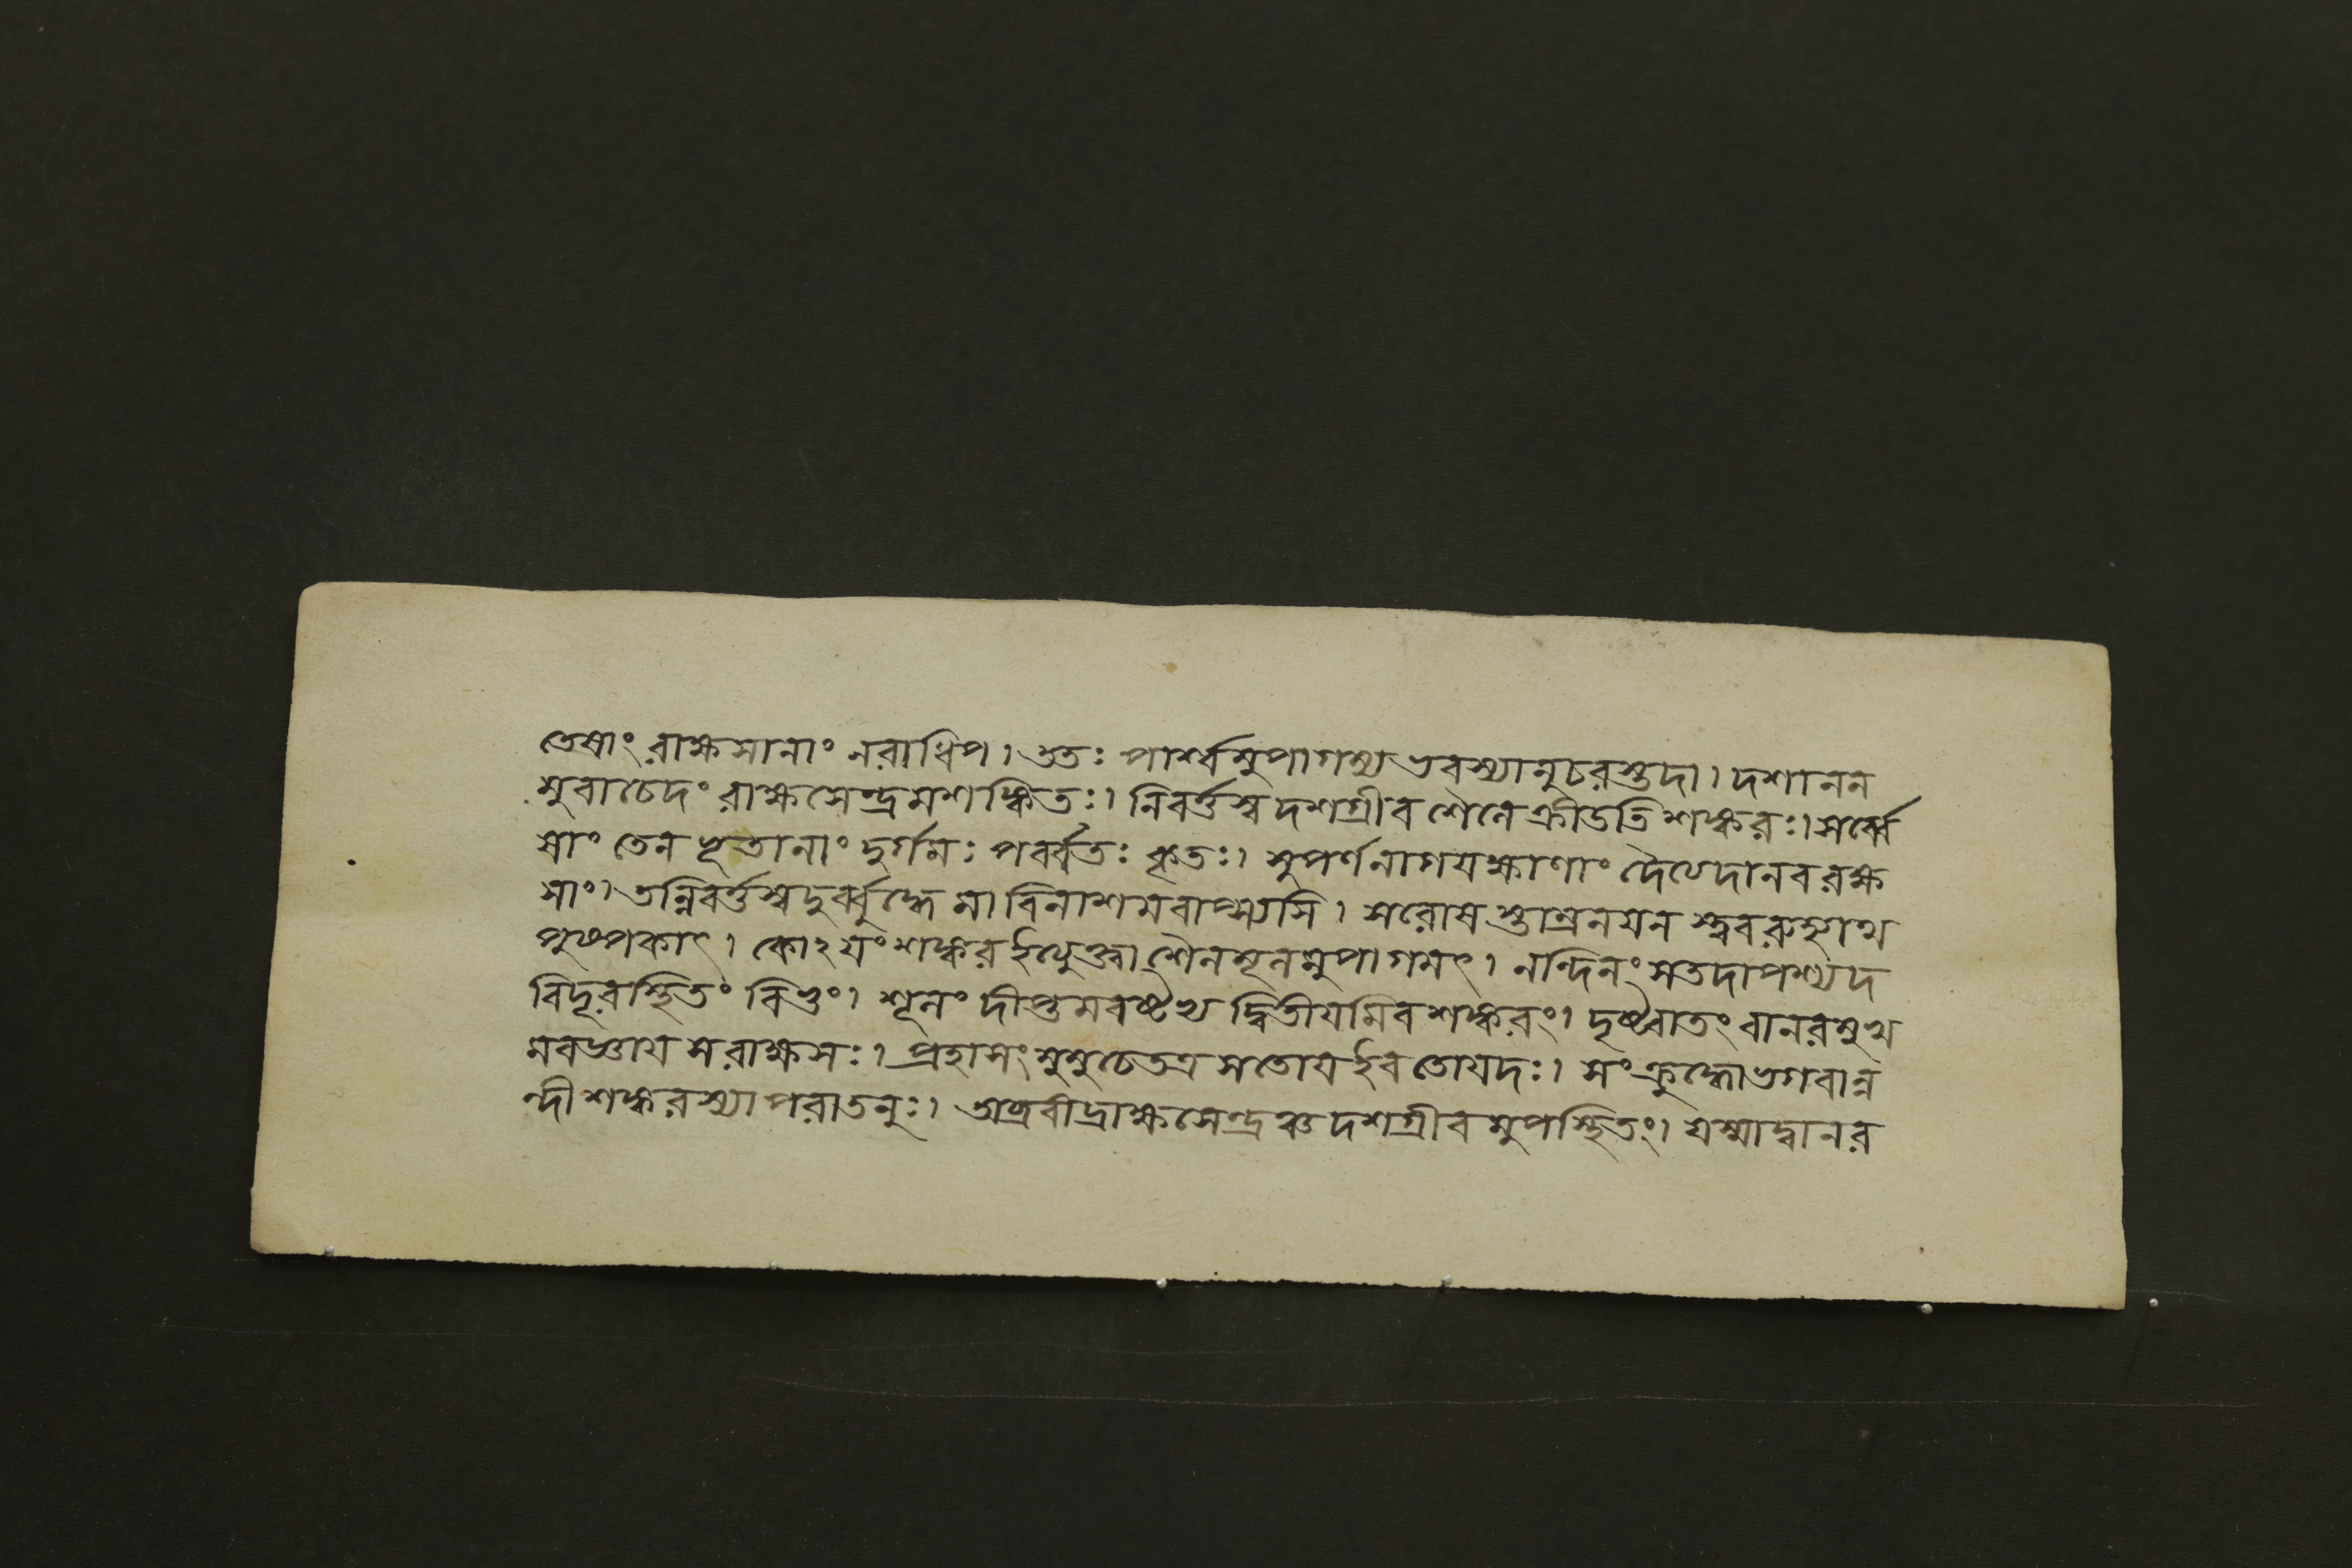 তেষাং রাক্ষসানাং নরাধিপ। ততঃ পার্শ্বমুপাগম্য ভবস্যানুচরস্তদা। দশানন
মুবাচেদং রাক্ষসেন্দ্রমশঙ্কিতঃ। নিবর্ত্তস্ব দশগ্রীব শৈলে ক্রীডতি শঙ্করঃ। সর্ব্বে
ষাং তেন ভূতানাং দুর্গমঃ পর্ব্বতঃ কৃতঃ। সুপর্ণনাগযক্ষাণাং দৈত্যদানবরক্ষ
সাং। তন্নিবর্ত্তস্বদুর্ব্বুদ্ধে মা বিনাশমবাপ্স্যসি। সরোষস্তাম্রনযন স্ত্ববরুহ্যাথ
পুষ্পকাৎ। কোঽযংশঙ্করইত্যুক্ত্বা শৈলমূলমুপাগমৎ। নন্দিনং সতদাপশ্যদ
বিদূরস্থিতং বিভুং। শূলং দীপ্তমবষ্টভ্য দ্বিতীযমিবশঙ্করং। দৃষ্ট্বাতংবানরমুখ
মবজ্ঞায সরাক্ষসঃ। প্রহাসং মুমুচেতত্র সতোযইব তোযদঃ। সংক্রুদ্ধোভগবান্ন
ন্দী শঙ্করস্যাপরাতনুঃ। অব্রবীদ্রাক্ষসেন্দ্রঞ্চ দশগ্রীবমুপস্থিতং। যস্মাদ্বানর